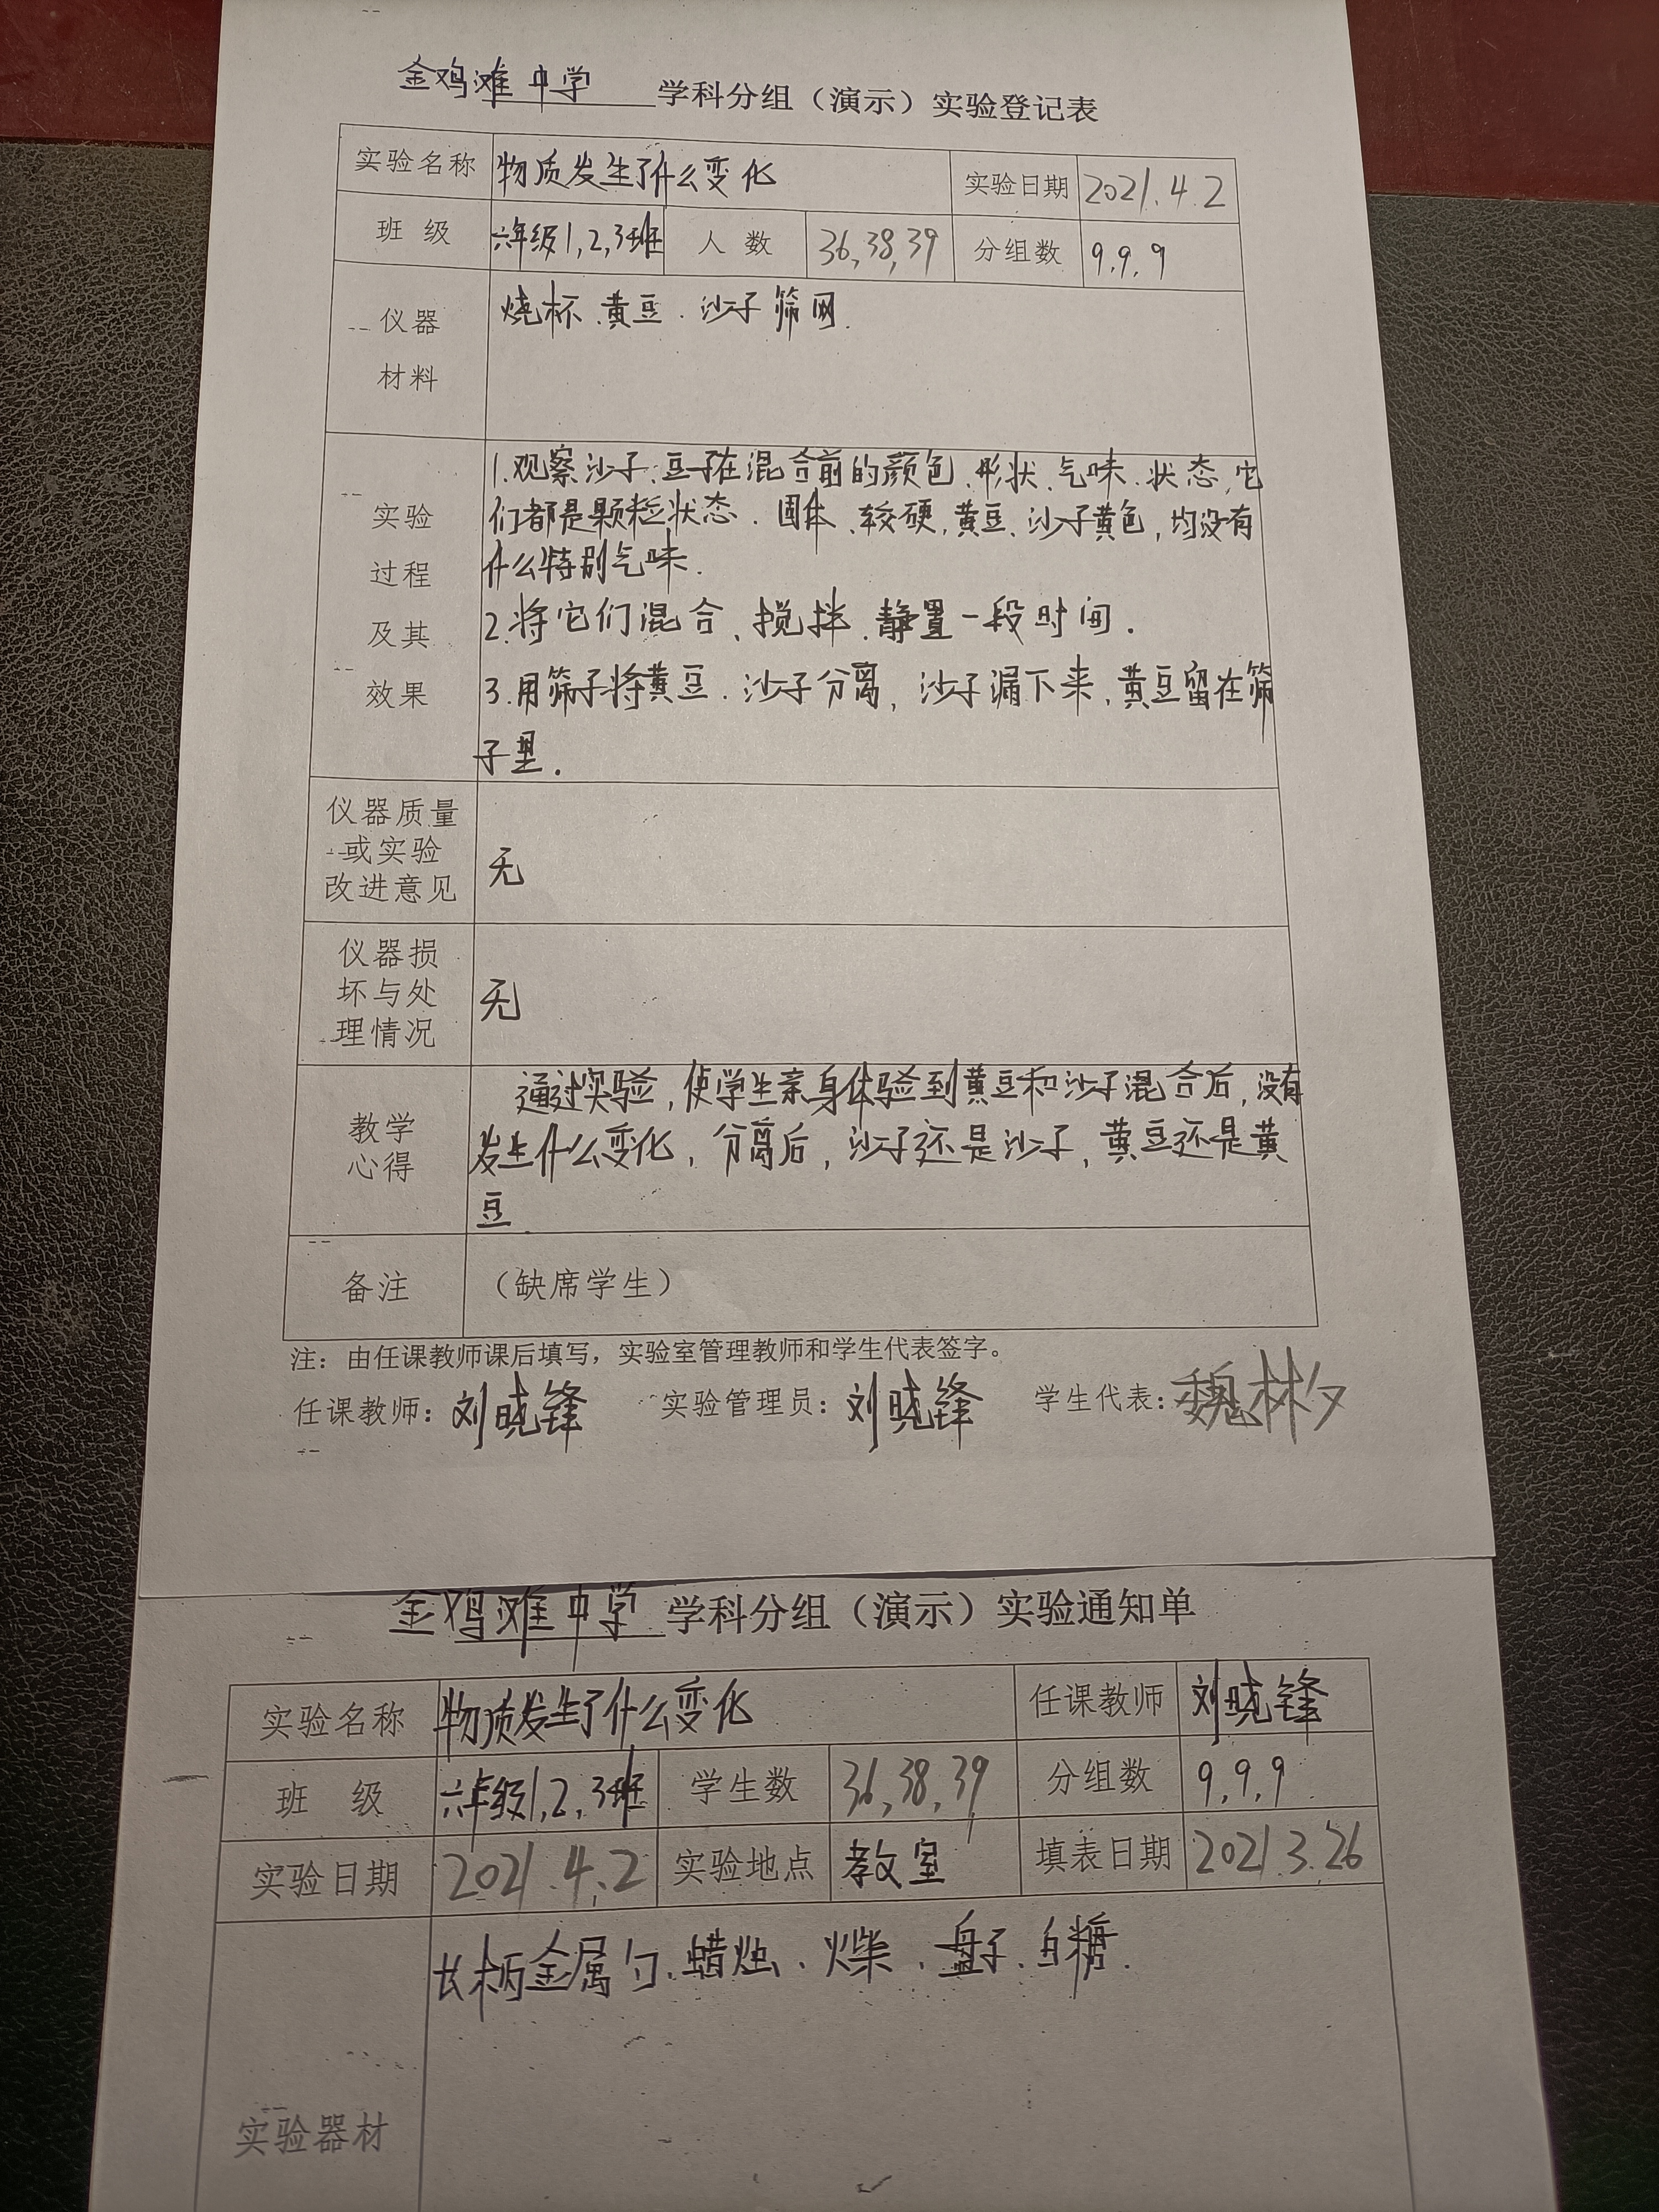 金鸡滩中学 学科分组（演示）实验登记表
实验名称 物质发生了什么变化 实验日期 2021.4.2
班 级 六年级1,2,3班 人 数 36,38,39 分组数 9,9,9
仪器
材料
烧杯、黄豆、沙子 筛网.
实验
过程
及其
效果
1.观察沙子、豆子在混合前的颜色、形状、气味、状态,它
们都是颗粒状态、固体、较硬,黄豆、沙子黄色,均没有
什么特别气味.
2.将它们混合、搅拌、静置一段时间.
3.用筛子将黄豆、沙子分离,沙子漏下来,黄豆留在筛
子里.
仪器质量
或实验
改进意见
无
仪器损
坏与处
理情况
无
教学
心得
通过实验,使学生亲身体验到黄豆和沙子混合后,没有
发生什么变化,分离后,沙子还是沙子,黄豆还是黄
豆.
备注 （缺席学生）
注：由任课教师课后填写，实验室管理教师和学生代表签字。
任课教师：刘晓锋 实验管理员：刘晓锋 学生代表：魏林夕
金鸡滩中学 学科分组（演示）实验通知单
实验名称 物质发生了什么变化 任课教师 刘晓锋
班 级 六年级1,2,3班 学生数 36,38,39 分组数 9,9,9
实验日期 2021.4.2 实验地点 教室 填表日期 2021.3.26
实验器材
长柄金属勺、蜡烛、火柴、盘子、白糖.